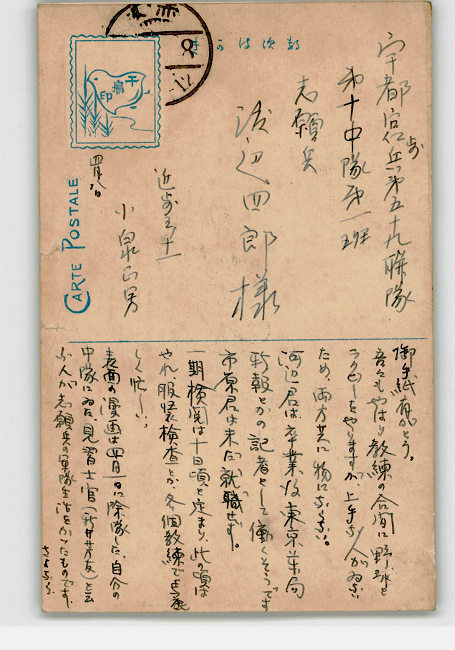 宇都宮歩兵第五十九聯隊
第十中隊第一班
志願兵
渡辺四郎様
近歩三ノ十一
小泉正男
四月八日
千鳥印
CARTE POSTALE
御手紙有がとう。
吾々もやはり教練の合間に野球と
ラグビーとをやりますが上手な人がゐない
ため、両方共に物にならない。
河辺君は卒業後東京薬局
新報とかの記者として働くそうです
市原君は未だ就職せず。
一期検閲は十日頃と定まり、此の頃は
やれ服装検査とか、各個教練で
しく忙しい。
表面の漫画は四月一日に除隊した、自分の
中隊にゐた見習士官(新井芳友)と云
ふ人が志願兵の軍隊生活をかたものです。
さよなら